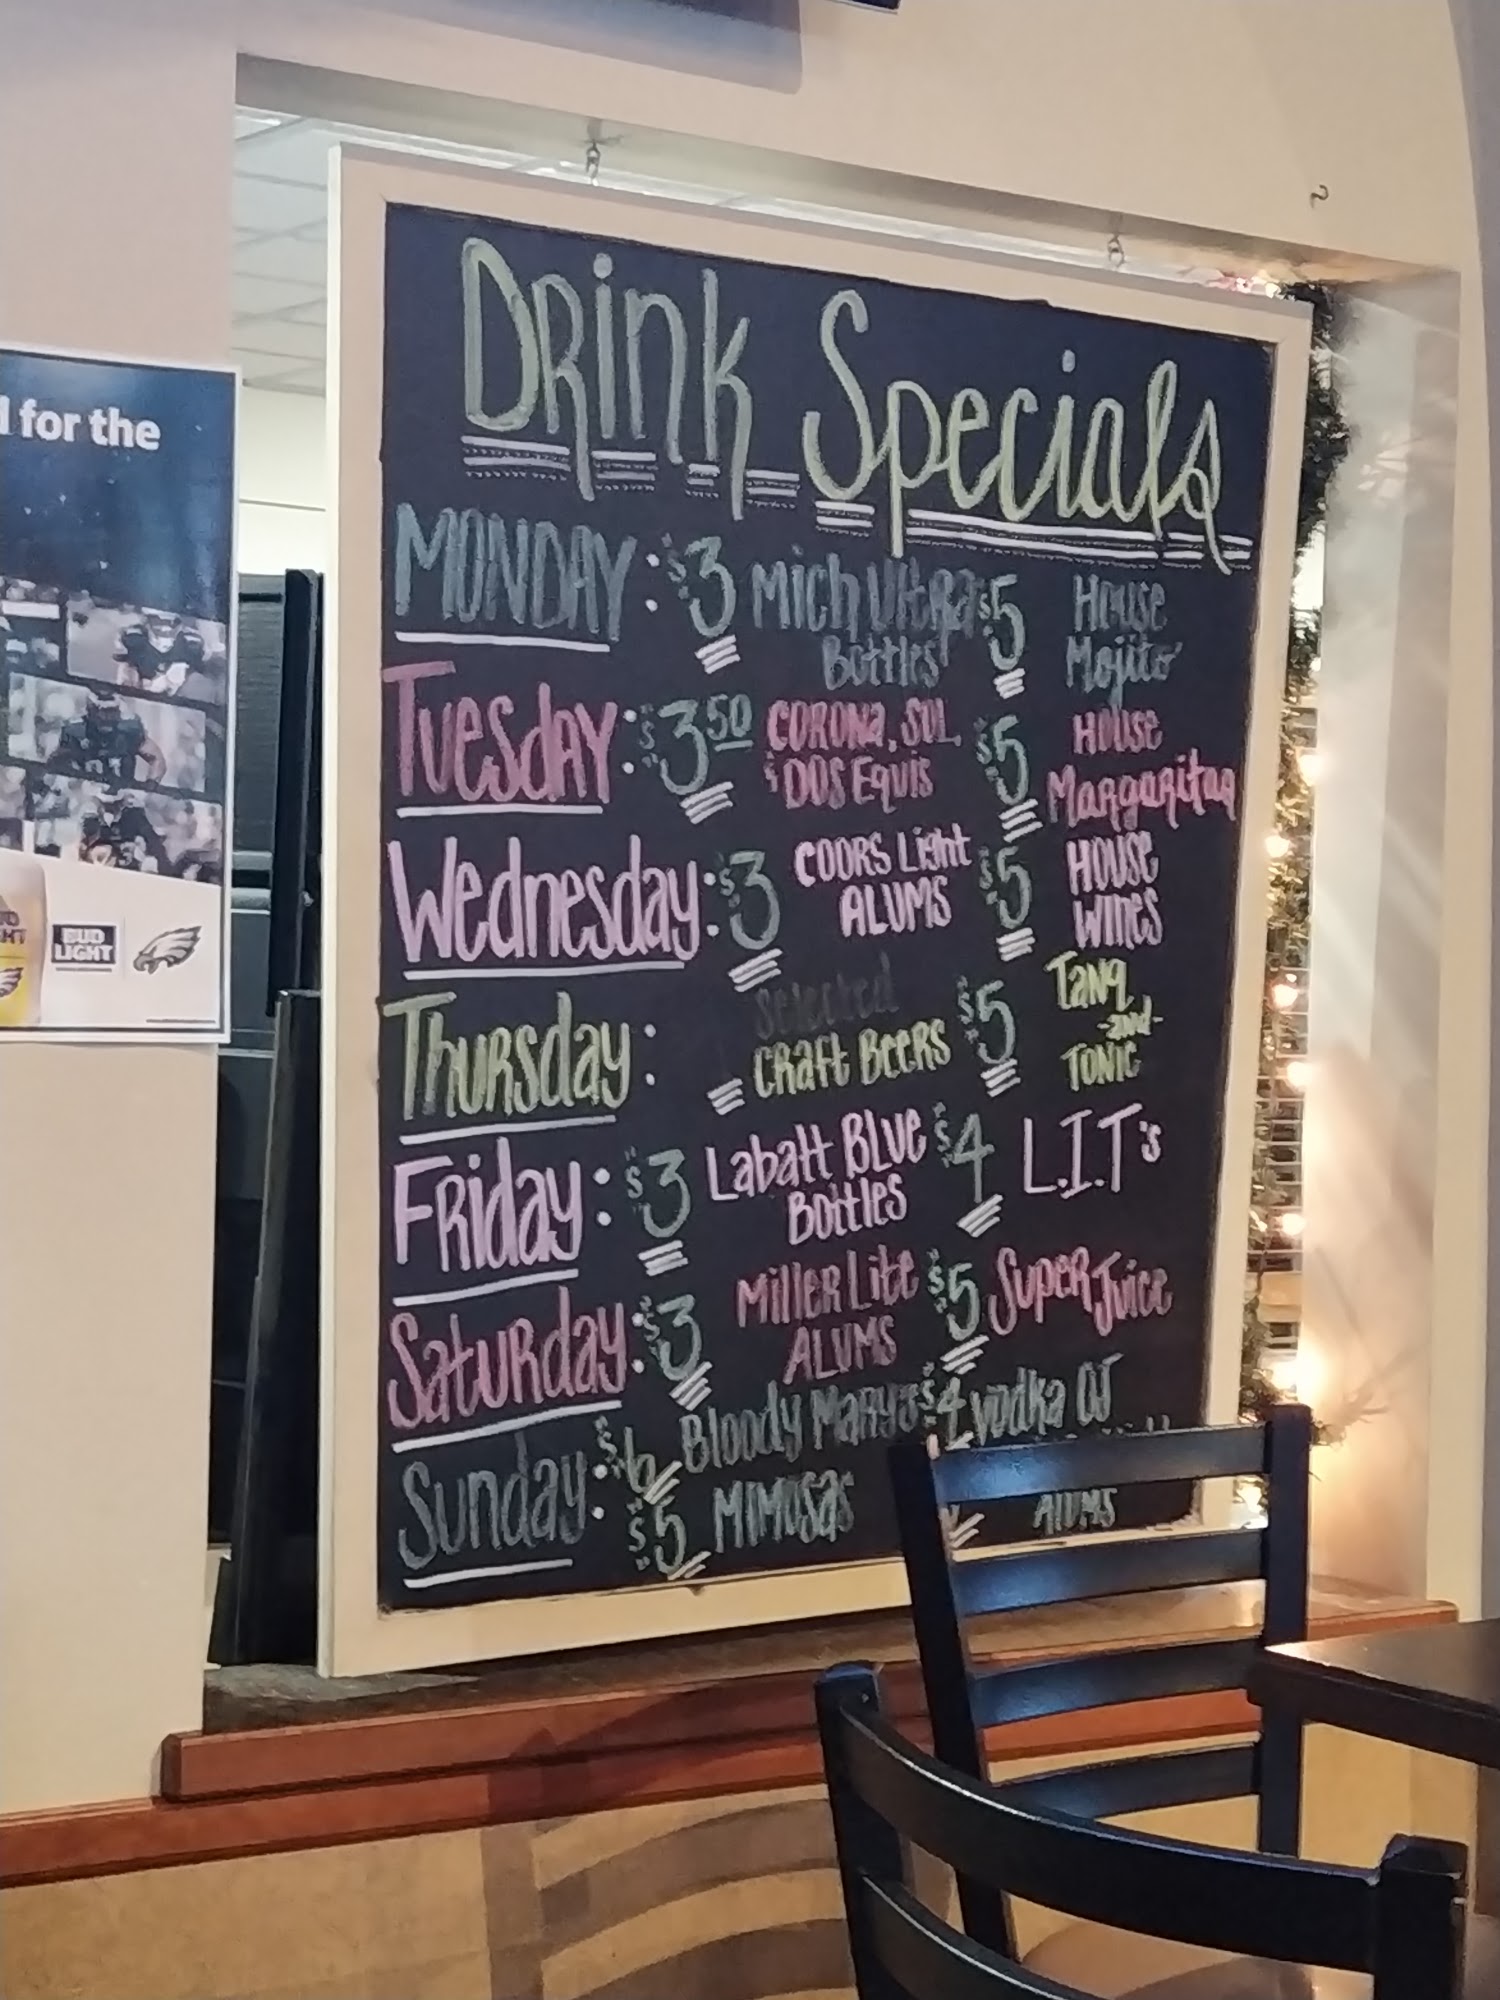 l for the
BUD
LIGHT
Drink Specials
MONDAY: $3 Mich Ultra $5 House
Bottles Mojito
Tuesday: $3.50 CORONA, SOL $5 HOUSE
& DOS Equis Margaritas
Wednesday: $3 COORS Light $5 HOUSE
ALUMS WINES
Thursday: Selected $5 Tanq
CRaft BeeRS -and-
TONIC
FRiday: $3 Labatt BLUE $4 L.I.T's
BOttLES
Saturday: $3 Miller Lite $5 Super Juice
ALUMS
Sunday: $6 Bloody Marys $4 Vodka OJ
$5 MIMOSAS ALUMS